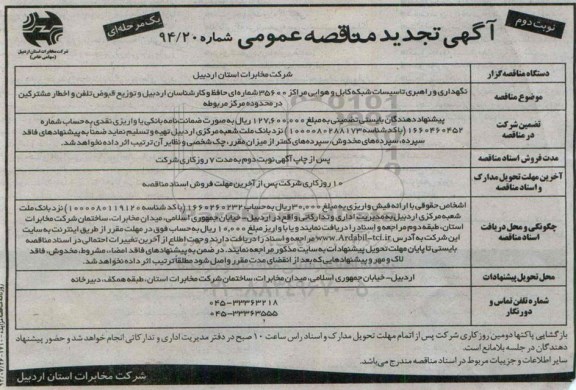 نوبت دوم
آگهی تجدید مناقصه عمومی شماره ۹۴/۲۰
یک مرحله‌ای
شرکت مخابرات استان اردبیل
(سهامی خاص)
دستگاه مناقصه گزار
شرکت مخابرات استان اردبیل
موضوع مناقصه
نگهداری و راهبری تاسیسات شبکه کابل و هوایی مراکز ۳۵۶۰۰ شماره‌ای حافظ و کارشناسان اردبیل و توزیع قبوض تلفن و اخطار مشترکین
در محدوده مرکز مربوطه
تضمین شرکت
در مناقصه
پیشنهاد دهندگان بایستی تضمینی به مبلغ ۱۲۷,۶۰۰,۰۰۰ ریال به صورت ضمانت نامه بانکی یا واریزی نقدی به حساب شماره
۱۶۶۰۴۶۰۴۵۲ (با کد شناسه ۱۰۰۰۰۸۰۲۸۸۱۷۳) نزد بانک ملت شعبه مرکزی اردبیل تهیه و تسلیم نماید ضمنا به پیشنهادهای فاقد
سپرده، سپرده‌های مخدوش، سپرده‌های کمتر از میزان مقرر، چک شخصی و نظایر آن ترتیب اثر داده نخواهد شد.
مدت فروش اسناد مناقصه
پس از چاپ آگهی نوبت دوم به مدت ۷ روز کاری شرکت
آخرین مهلت تحویل مدارک
و اسناد مناقصه
۱۰ روز کاری شرکت پس از آخرین مهلت فروش اسناد مناقصه
چگونگی و محل دریافت
اسناد مناقصه
اشخاص حقوقی با ارائه فیش واریزی به مبلغ ۳۰,۰۰۰ ریال به حساب ۱۶۶۰۲۶۰۲۳۲ (با کد شناسه ۱۰۰۰۰۸۰۱۱۹۱۲۰) نزد بانک ملت
شعبه مرکزی اردبیل به مدیریت اداری و تدارکاتی واقع در اردبیل - خیابان جمهوری اسلامی، میدان مخابرات، ساختمان شرکت مخابرات
استان، طبقه دوم مراجعه و اسناد را دریافت نمایند و یا با واریز مبلغ ۱۰,۰۰۰ ریال به حساب فوق در مهلت مقرر از طریق اینترنت به سایت
این شرکت به آدرس www.Ardabil-tci.ir مراجعه و اسناد را دریافت دارند و جهت اطلاع از آخرین تغییرات احتمالی در اسناد مناقصه
بایستی تا پایان مهلت تحویل پیشنهادات به سایت مذکور مراجعه نمایند. در ضمن به پیشنهادهای فاقد امضاء، مشروط، مخدوش، فاقد
لاک و مهر و پیشنهادهایی که بعد از انقضای مدت مقرر واصل شود مطلقا ترتیب اثر داده نخواهد شد.
محل تحویل پیشنهادات
اردبیل - خیابان جمهوری اسلامی، میدان مخابرات، ساختمان شرکت مخابرات استان، طبقه همکف، دبیرخانه
شماره تلفن تماس و
دورنگار
۰۴۵-۳۳۳۶۳۲۱۸
۰۴۵-۳۳۳۶۳۵۵۵
بازگشایی پاکتها دومین روز کاری شرکت پس از اتمام مهلت تحویل مدارک و اسناد راس ساعت ۱۰ صبح در دفتر مدیریت اداری و تدارکاتی انجام خواهد شد و حضور پیشنهاد
دهندگان در جلسه بلامانع است.
سایر اطلاعات و جزییات مربوط در اسناد مناقصه مندرج می‌باشد.
شرکت مخابرات استان اردبیل